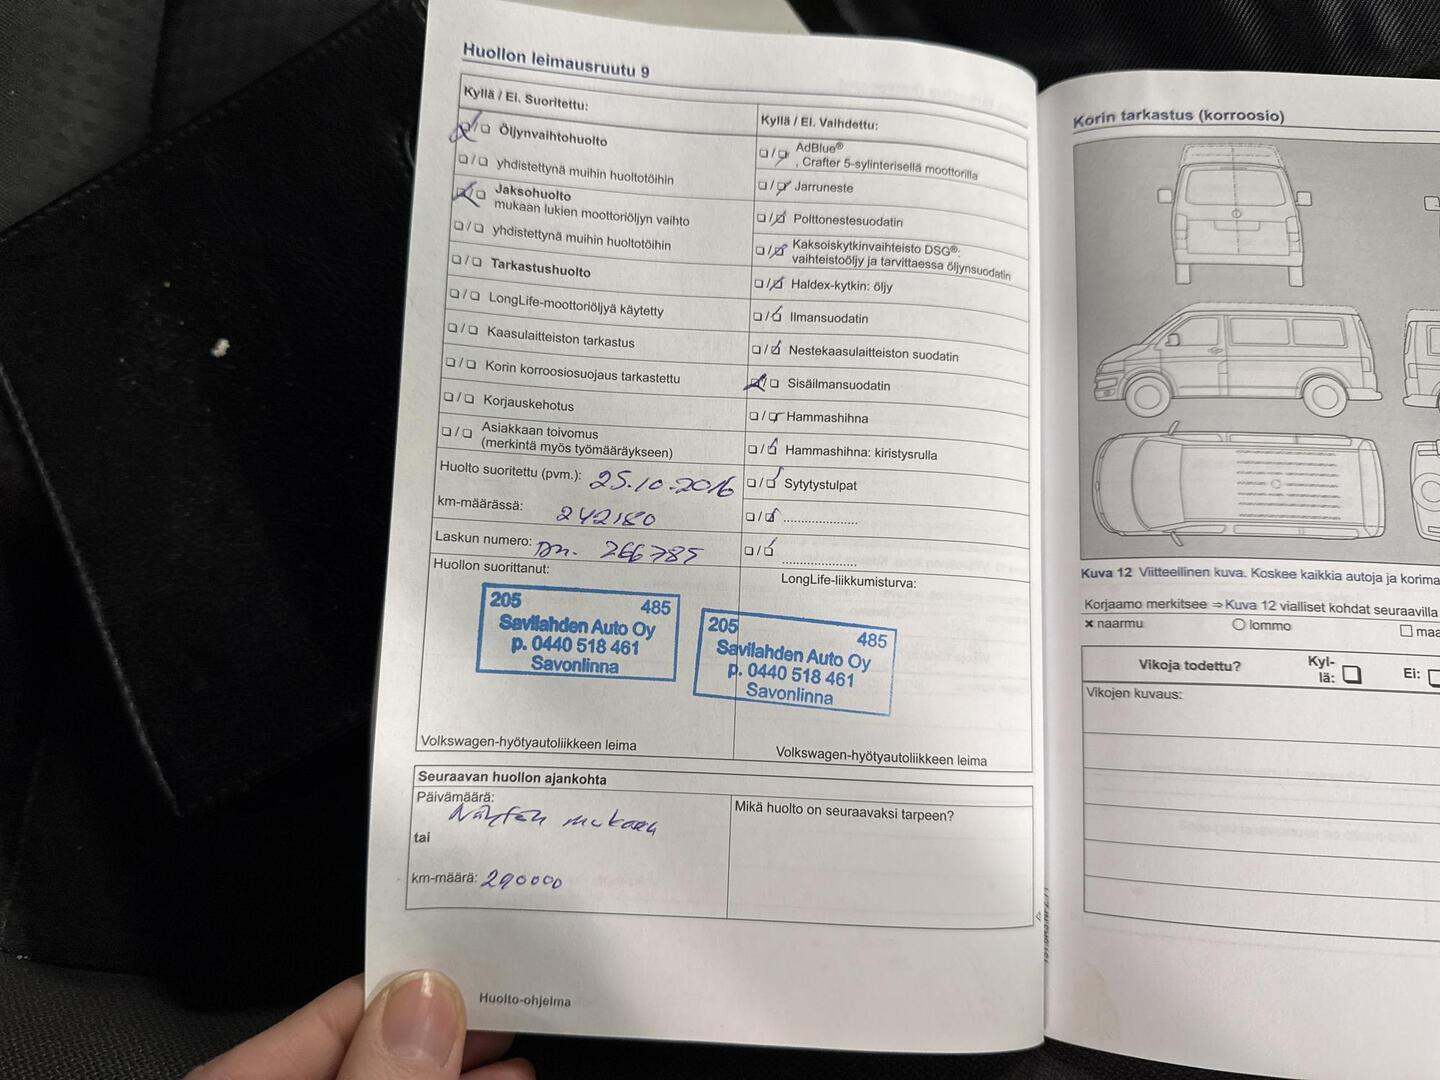 Huollon leimausruutu 9
Kyllä / Ei. Suoritettu:
Öljynvaihtohuolto
yhdistettynä muihin huoltotöihin
Jaksohuolto
mukaan lukien moottoriöljyn vaihto
yhdistettynä muihin huoltotöihin
Tarkastushuolto
LongLife-moottoriöljyä käytetty
Kaasulaitteiston tarkastus
Korin korroosiosuojaus tarkastettu
Korjauskehotus
Asiakkaan toivomus
(merkintä myös työmääräykseen)
Huolto suoritettu (pvm.): 25.10.2016
km-määrässä: 242180
Laskun numero: 266785
Huollon suorittanut:
205 485
Savilahden Auto Oy
p. 0440 518 461
Savonlinna
Volkswagen-hyötyautoliikkeen leima
Kyllä / Ei. Vaihdettu:
AdBlue®
, Crafter 5-sylinterisellä moottorilla
Jarruneste
Polttonestesuodatin
Kaksoiskytkinvaihteisto DSG®:
vaihteistoöljy ja tarvittaessa öljynsuodatin
Haldex-kytkin: öljy
Ilmansuodatin
Nestekaasulaitteiston suodatin
Sisäilmansuodatin
Hammashihna
Hammashihna: kiristysrulla
Sytytystulpat
LongLife-liikkumisturva:
205 485
Savilahden Auto Oy
p. 0440 518 461
Savonlinna
Volkswagen-hyötyautoliikkeen leima
Seuraavan huollon ajankohta
Päivämäärä:
Näytön mukaan
tai
km-määrä: 290000
Mikä huolto on seuraavaksi tarpeen?
Huolto-ohjelma
Korin tarkastus (korroosio)
Kuva 12 Viitteellinen kuva. Koskee kaikkia autoja ja korima
Korjaamo merkitsee ⇒ Kuva 12 vialliset kohdat seuraavilla
× naarmu ○ lommo □ maa
Vikoja todettu? Kyl-
lä: Ei:
Vikojen kuvaus: